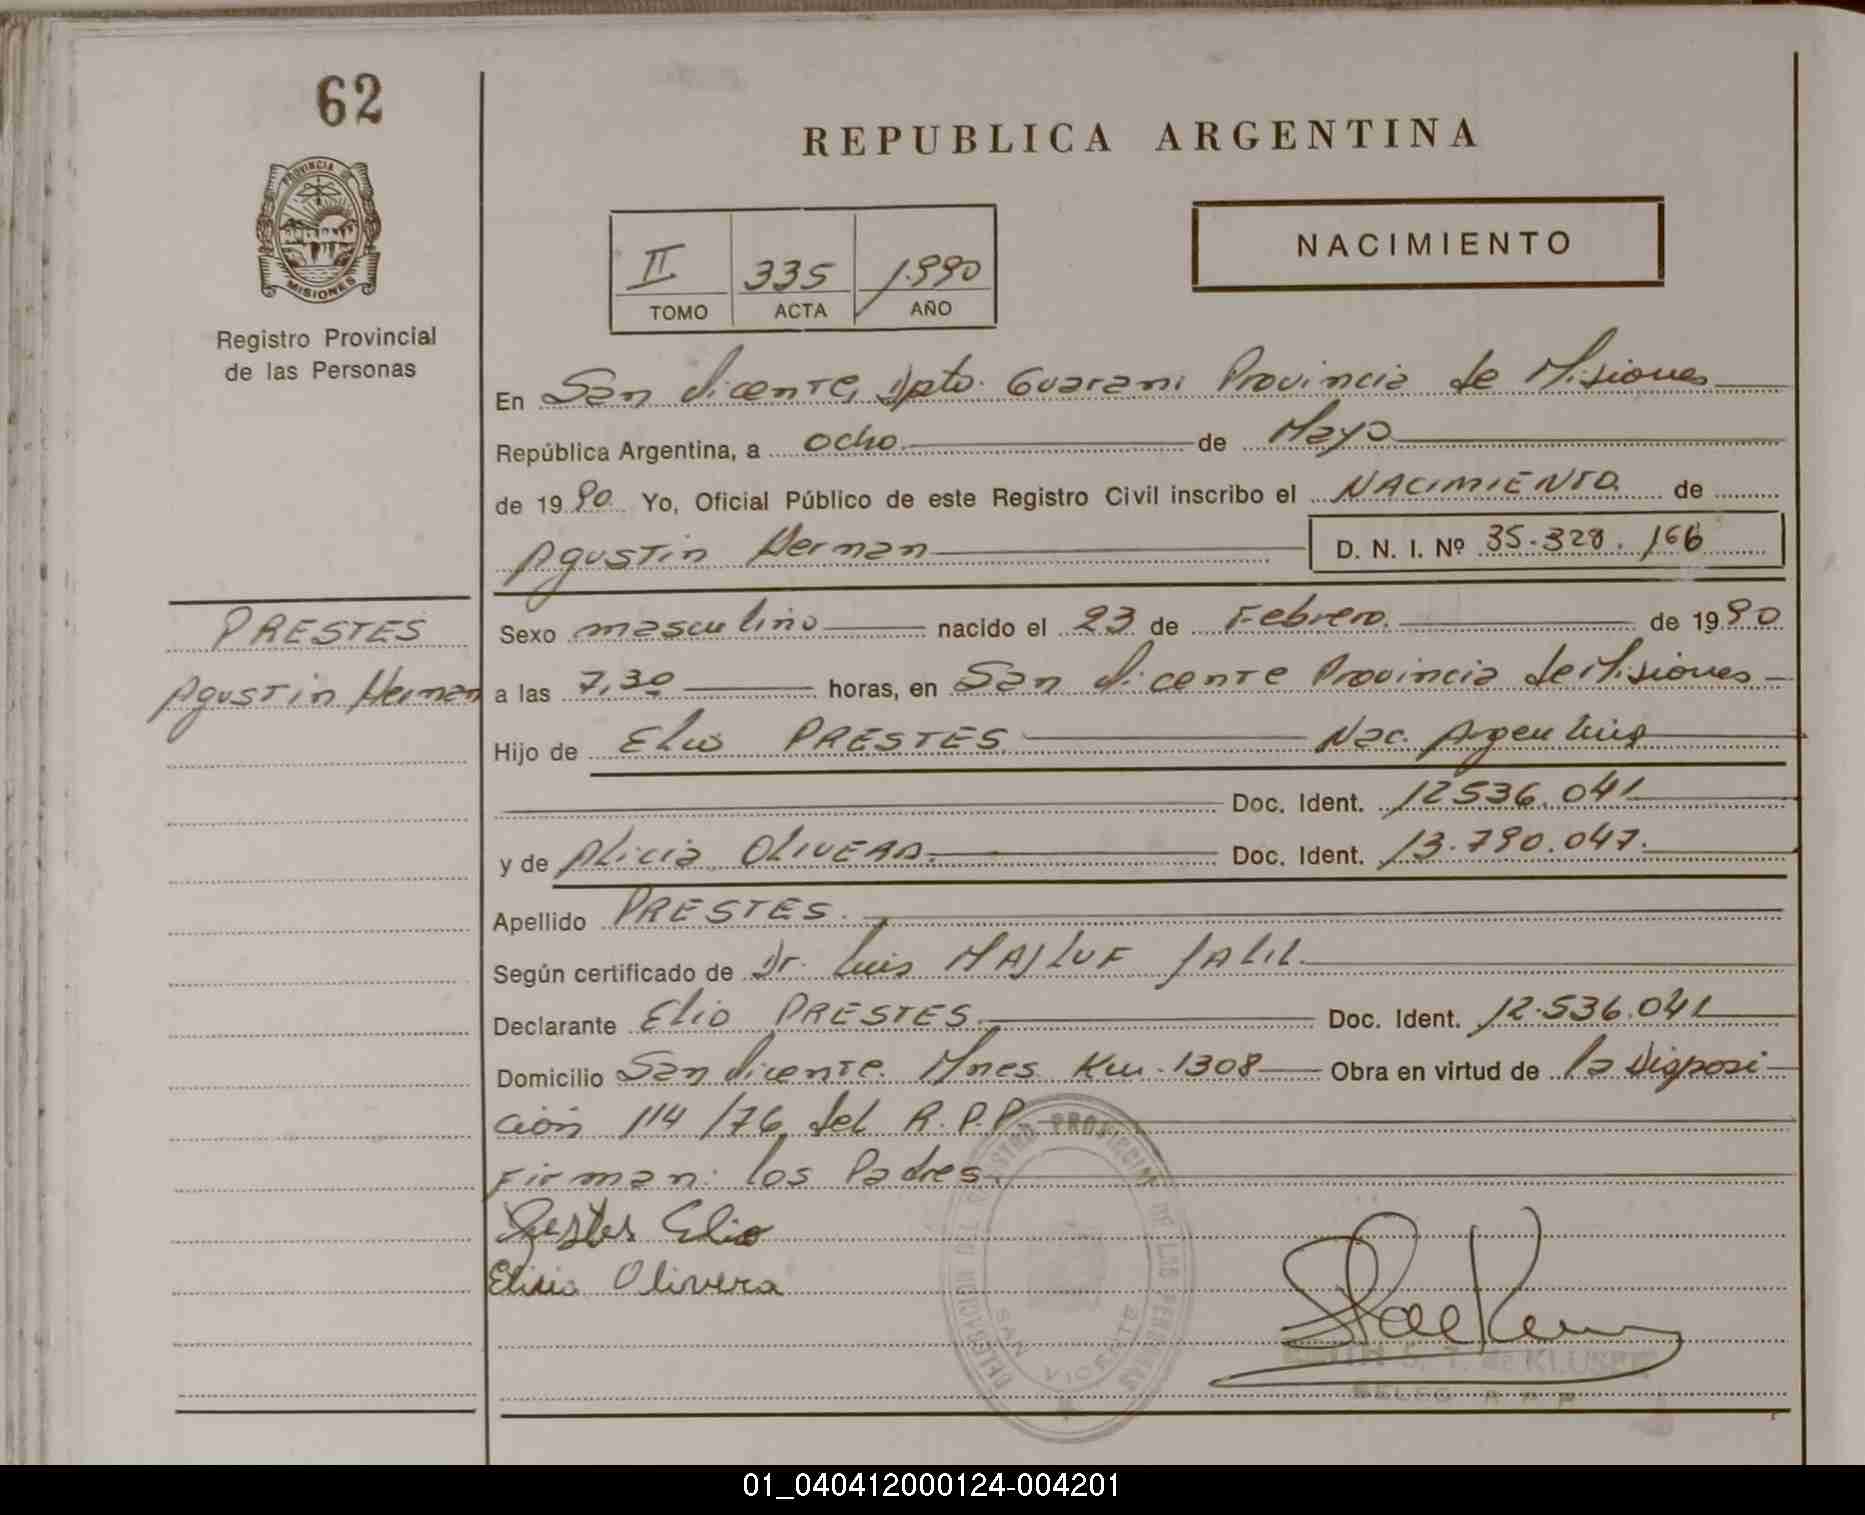 62
REPUBLICA ARGENTINA
PROVINCIA DE
MISIONES
Registro Provincial
de las Personas
II 335 1.990
TOMO ACTA AÑO
NACIMIENTO
En San Vicente, Dpto. Guarani Provincia de Misiones
República Argentina, a ocho de Mayo
de 1990 Yo, Oficial Público de este Registro Civil inscribo el NACIMIENTO de
Agustin Hernan D. N. I. Nº 35.328.166
PRESTES
Agustin Hernan
Sexo masculino nacido el 23 de Febrero de 1990
a las 7,30 horas, en San Vicente Provincia de Misiones
Hijo de Elio PRESTES Nac. Argentina
Doc. Ident. 12536.041
y de Alicia OLIVERA Doc. Ident. 13.790.047.
Apellido PRESTES.
Según certificado de Dr. Luis MAJLUF JALIL.
Declarante Elio PRESTES. Doc. Ident. 12.536.041
Domicilio San Vicente. Mnes. Km. 1308 Obra en virtud de la Disposi
ción 114/76 del R.P.P.
Firman: los Padres.
Prestes Elio
Olivera
DELEGACION DEL REGISTRO PROVINCIAL DE LAS PERSONAS
SAN VICENTE
S. T. de
DELEG. R P P
01_040412000124-004201